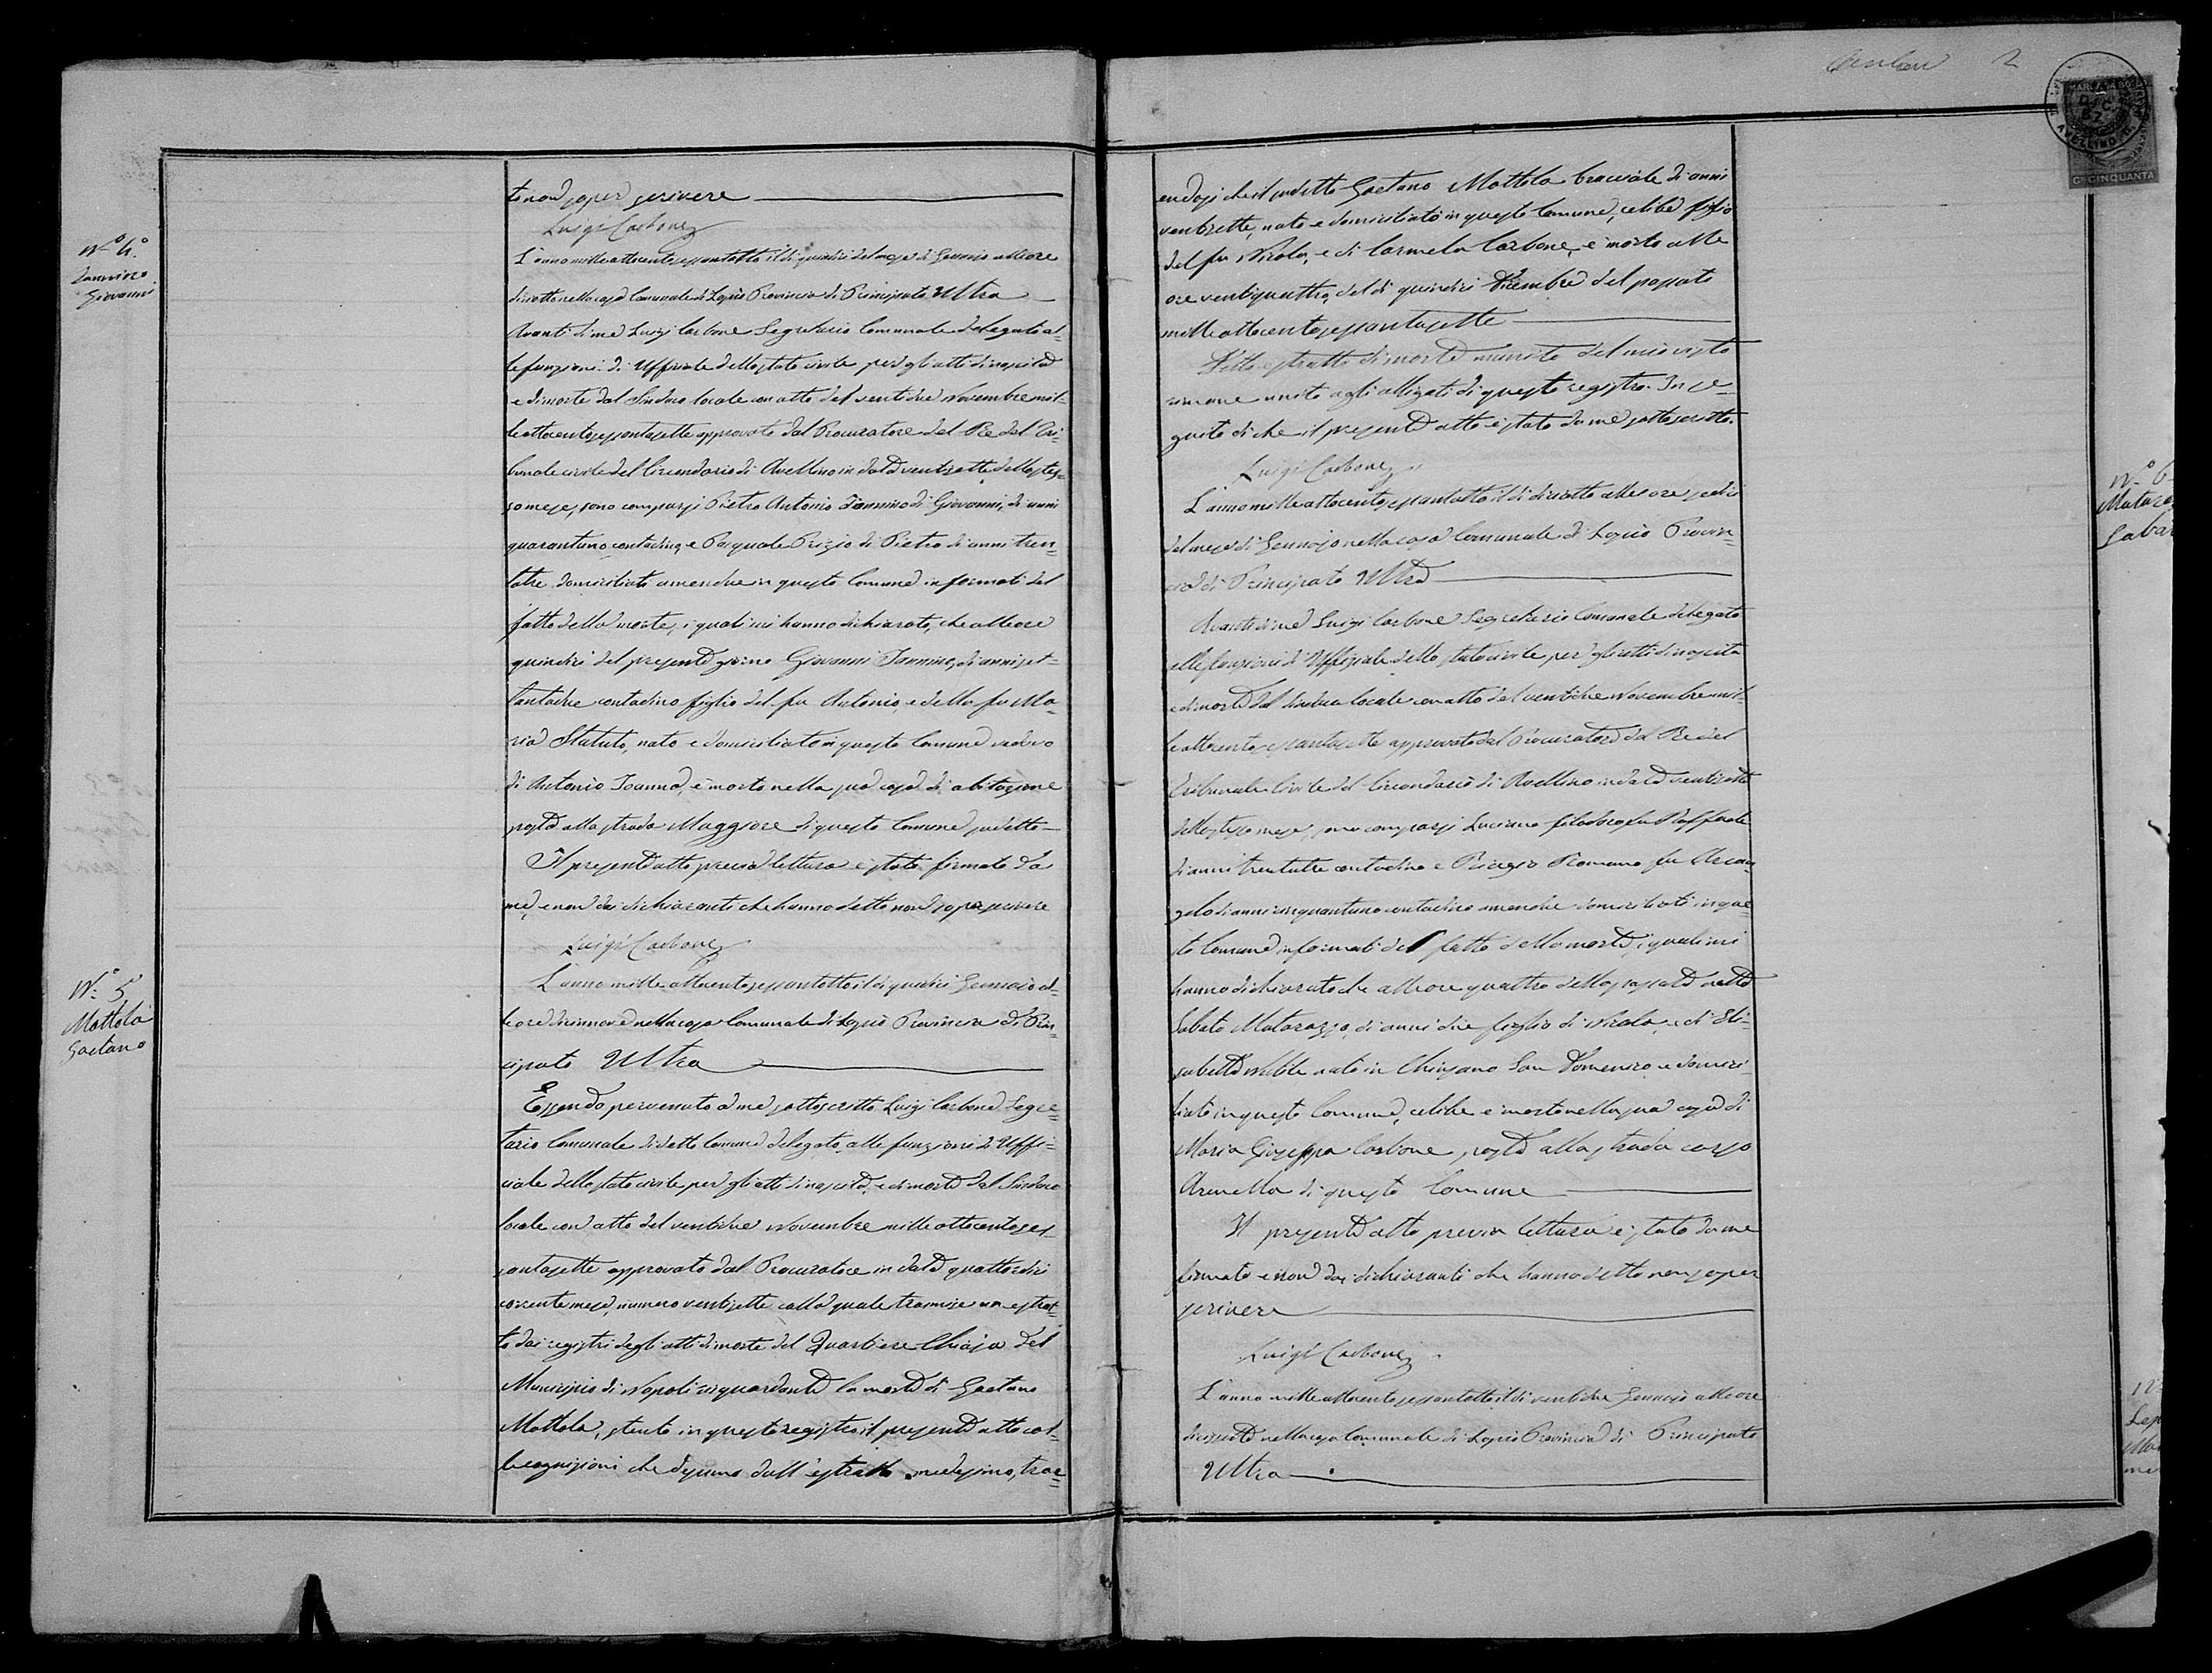 N.º 4.º
Iannino
Giovanni
to non saper scrivere
Luigi Carbone
L'anno mille ottocento sessantotto il dì quindici del mese di Gennaio alle ore
diciotto nella casa Comunale di Lapio Provincia di Principato Ultra
Avanti di me Luigi Carbone Segretario Comunale delegato al-
le funzioni di Uffiziale dello stato civile per gli atti di nascita
e di morte dal Sindaco locale con atto del ventidue Novembre mil-
le ottocento sessantasette approvato dal Procuratore del Re del Tri-
bunale civile del Circondario di Avellino in data ventisette dello stes-
so mese, sono comparsi Pietro Antonio Iannino di Giovanni, di anni
quarantuno contadino, e Pasquale Prizio di Pietro di anni tren-
tatre domiciliati amendue in questo Comune informati del
fatto della morte, i quali mi hanno dichiarato, che alle ore
quindici del presente giorno Giovanni Iannino, di anni set-
tantadue contadino figlio del fu Antonio, e della fu Ma-
ria Statuto, nato e domiciliato in questo Comune vedovo
di Antonio Ioanna, è morto nella sua casa di abitazione
posta alla strada Maggiore di questo Comune sudetto
Il presente atto previa lettura è stato firmato da
me, e non dai dichiaranti che hanno detto non saper scrivere
Luigi Carbone
N.º 5
Mottola
Gaetano
L'anno mille ottocento sessantotto il dì quindici Gennaio al-
le ore diciannove nella casa Comunale di Lapio Provincia di Prin-
cipato Ultra
Essendo pervenuto a me sottoscritto Luigi Carbone Segre-
tario Comunale di detto Comune delegato alle funzioni di Uffi-
ciale dello stato civile per gli atti di nascita, e di morte dal Sindaco
locale con atto del ventidue Novembre mille ottocento ses-
santasette approvato dal Procuratore in data quattordici
corrente mese, numero ventisette colla quale tramise un estrat-
to dai registri degli atti di morte del Quartiere Chiaja del
Municipio di Napoli riguardante la morte di Gaetano
Mottola, stento in questo registro il presente atto col-
le cognizioni che desumo dall'estratto medesimo, trac-
Carbone 2
MARCA DA BOLLO
AVELLINO
Cⁱ CINQUANTA
endosi che il sudetto Gaetano Mottola bracciale di anni
ventisette, nato e domiciliato in questo Comune, celibe figlio
del fu Nicola, e di Carmela Carbone, è morto alle
ore ventiquattro, del dì quindici Dicembre del passato
mille ottocento sessantasette
Detto estratto di morte munito del mio visto
rimane unito agli alligati di questo registro. In se-
guito di che il presente atto è stato da me sottoscritto.
Luigi Carbone
N.º 6
Mataraz
Saba
L'anno mille ottocento sessantotto il dì diciotto alle ore sedici
del mese di Gennajo nella casa Comunale di Lapio Provin-
cia di Principato Ultra
Avanti di me Luigi Carbone Segretario Comunale delegato
alle funzioni di Uffiziale dello stato civile per gli atti di nascita
e di morte dal Sindaco locale con atto del ventidue Novembre mil-
le ottocento sessantasette approvato dal Procuratore del Re del
Tribunale Civile del Circondario di Avellino in data ventisette
dello stesso mese, sono comparsi Luciano Filadoro fu Raffaele
di anni trentatre contadino e Biagio Romano fu Arcan-
gelo di anni cinquantuno contadino amendue domiciliati in que-
sto Comune informati del fatto della morte, i quali mi
hanno dichiarato che alle ore quattro della passata notte
Sabato Matarazzo, di anni due figlio di Nicola, e di Eli-
sabetta nato in Chiusano San Domenico e domici-
liato in questo Comune, celibe è morto nella sua casa di
Maria Giuseppa Carbone, posta alla strada corso
Arenella di questo Comune
Il presente atto previa lettura è stato da me
firmato e non dai dichiaranti che hanno detto non saper
scrivere
Luigi Carbone
N
Lep
Ma
L'anno mille ottocento sessantotto il dì ventidue Gennajo alle ore
diciassette nella casa Comunale di Lapio Provincia di Principato
Ultra